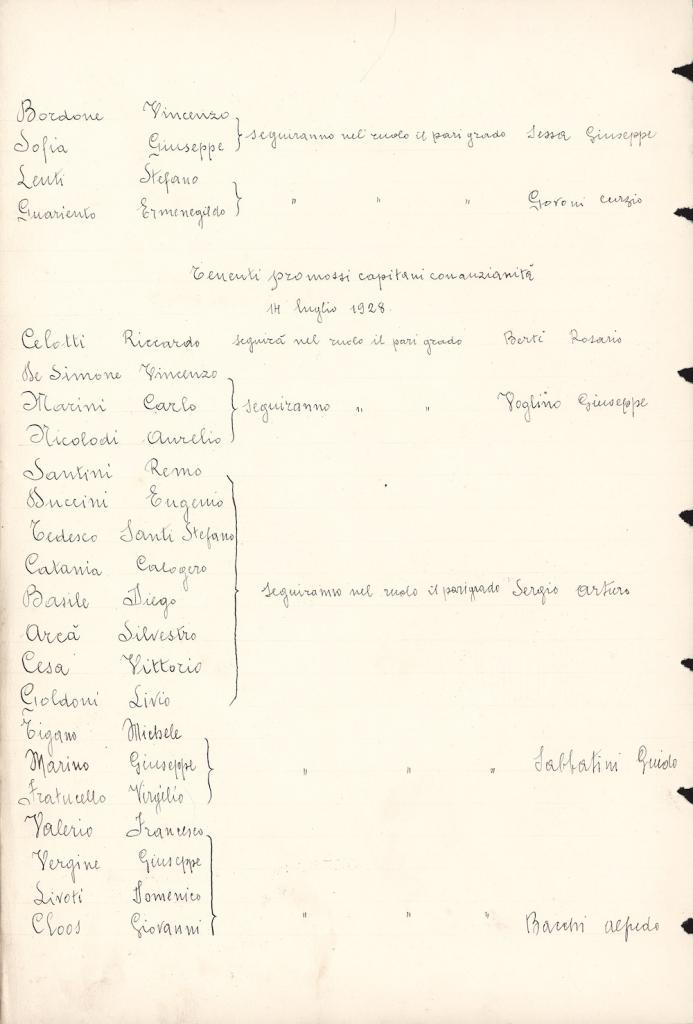 Bordone Vincenzo
Sofia Giuseppe seguiranno nel ruolo il pari grado Sessa Giuseppe
Lenti Stefano
Guariento Ermenegildo " " " Govoni Curzio
Tenenti promossi capitani con anzianità
14 luglio 1928.
Celotti Riccardo seguirà nel ruolo il pari grado Berti Rosario
De Simone Vincenzo
Marini Carlo seguiranno " " Voglino Giuseppe
Nicolodi Aurelio
Santini Remo
Duccini Eugenio
Tedesco Santi Stefano
Catania Calogero
Basile Diego seguiranno nel ruolo il pari grado Sergio Arturo
Arcà Silvestro
Cesa Vittorio
Goldoni Livio
Tigano Michele
Marino Giuseppe " " " Sabbatini Guido
Fratucello Virgilio
Valerio Francesco
Vergine Giuseppe
Livoti Domenico
Cloos Giovanni " " " Bacchi Alfredo